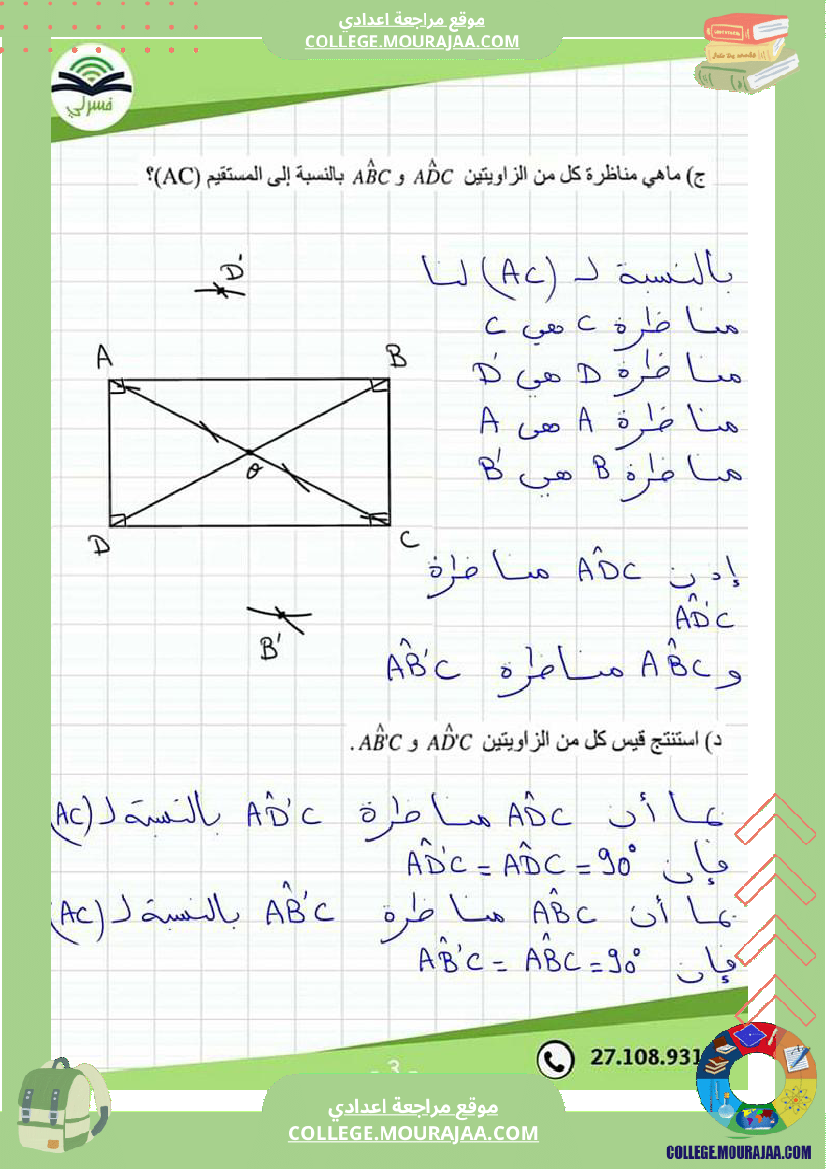 موقع مراجعة اعدادي
COLLEGE.MOURAJAA.COM
فسرلي
ج) ماهي مناظرة كل من الزاويتين AD̂C و AB̂C بالنسبة إلى المستقيم (AC)؟
بالنسبة لـ (AC) لنا
مناظرة C هي C
مناظرة D هي D'
مناظرة A هي A
مناظرة B هي B'
D'
A
B
O
D
C
B'
إذن AD̂C مناظرة
AD̂'C
و AB̂C مناظرة AB̂'C
د) استنتج قيس كل من الزاويتين AD̂'C و AB̂'C.
بما أن AD̂C مناظرة AD̂'C بالنسبة لـ (AC)
فإن AD̂'C = AD̂C = 90°
بما أن AB̂C مناظرة AB̂'C بالنسبة لـ (AC)
فإن AB̂'C = AB̂C = 90°
- 3 -
27.108.931
موقع مراجعة اعدادي
COLLEGE.MOURAJAA.COM
COLLEGE.MOURAJAA.COM